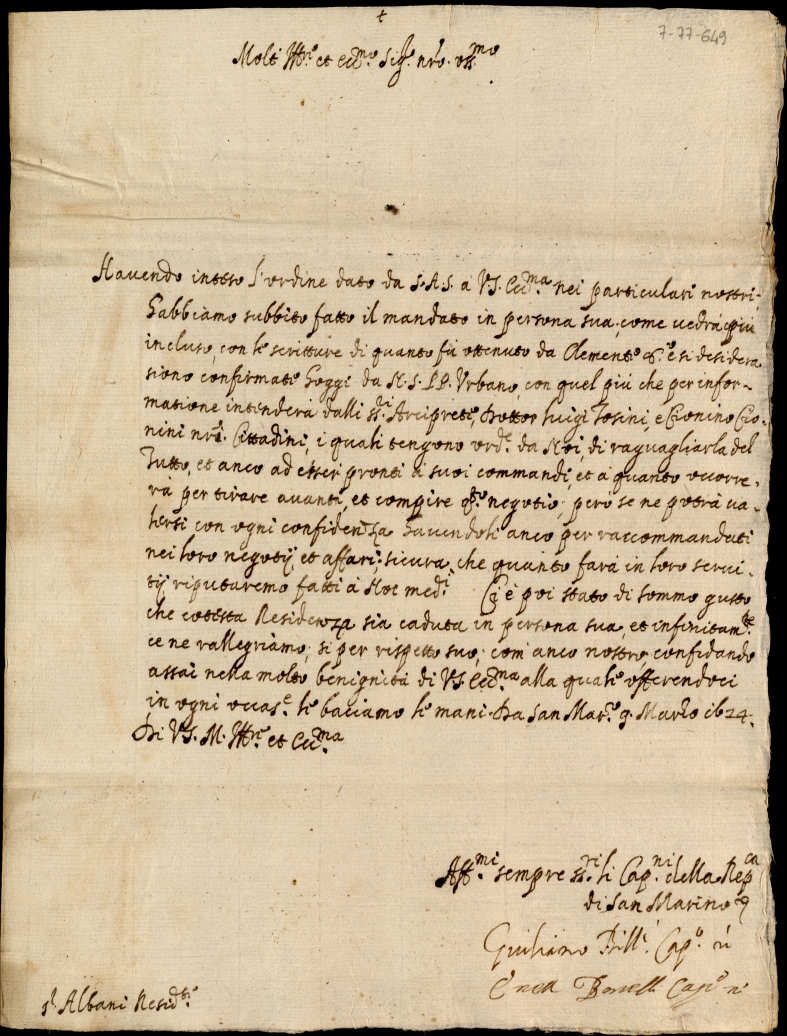 7-77-649
Molt Ill.re et ecc.mo Sig.re n.ro oss.mo
Havendo inteso l'ordine dato da S.A.S. a V.S. Ecc.ma nei particulari nostri,
habbiamo subbito fatto il mandato in persona sua, come vedrà qui
incluso, con le scritture di quanto fù ottenuto da Clemente 8.o e si desidera
siano confirmate hoggi da N.S. PP. Urbano, con quel più che per infor-
matione intenderà dalli SS.ri Arciprete, Dottor Luigi Tosini, e Cionino Cio-
nini nr̃i Cittadini, i quali tengono ord.e da Noi, di raguagliarla del
tutto, et anco ad esser pronti à suoi commandi, et à quanto occorre-
rà per tirare avanti, et compire q.to negotio; però se ne potrà va-
lersi con ogni confidenza havendoli anco per raccommandati
nei loro negotij, et affari; sicura, che quanto farà in loro servi-
tij reputaremo fatti à Noi med.i Ci è poi stato di sommo gusto
che cotesta Residenza sia caduta in persona sua, et infinitam.te
ce ne rallegriamo, si per rispetto suo, com' anco nostro, confidando
assai nella molto benignità di V.S. Ecc.ma alla quale offerendoci
in ogni occas.e le baciamo le mani. Da San Mar.o 9. Marzo 1624.
Di V.S. M. Ill.re et Ecc.ma
Aff.mi sempre ss.ri li Cap.ni della Rep.ca
di San Marino
Giuliano Belli Cap.o
Cap.o
S.r Albani Resid.te